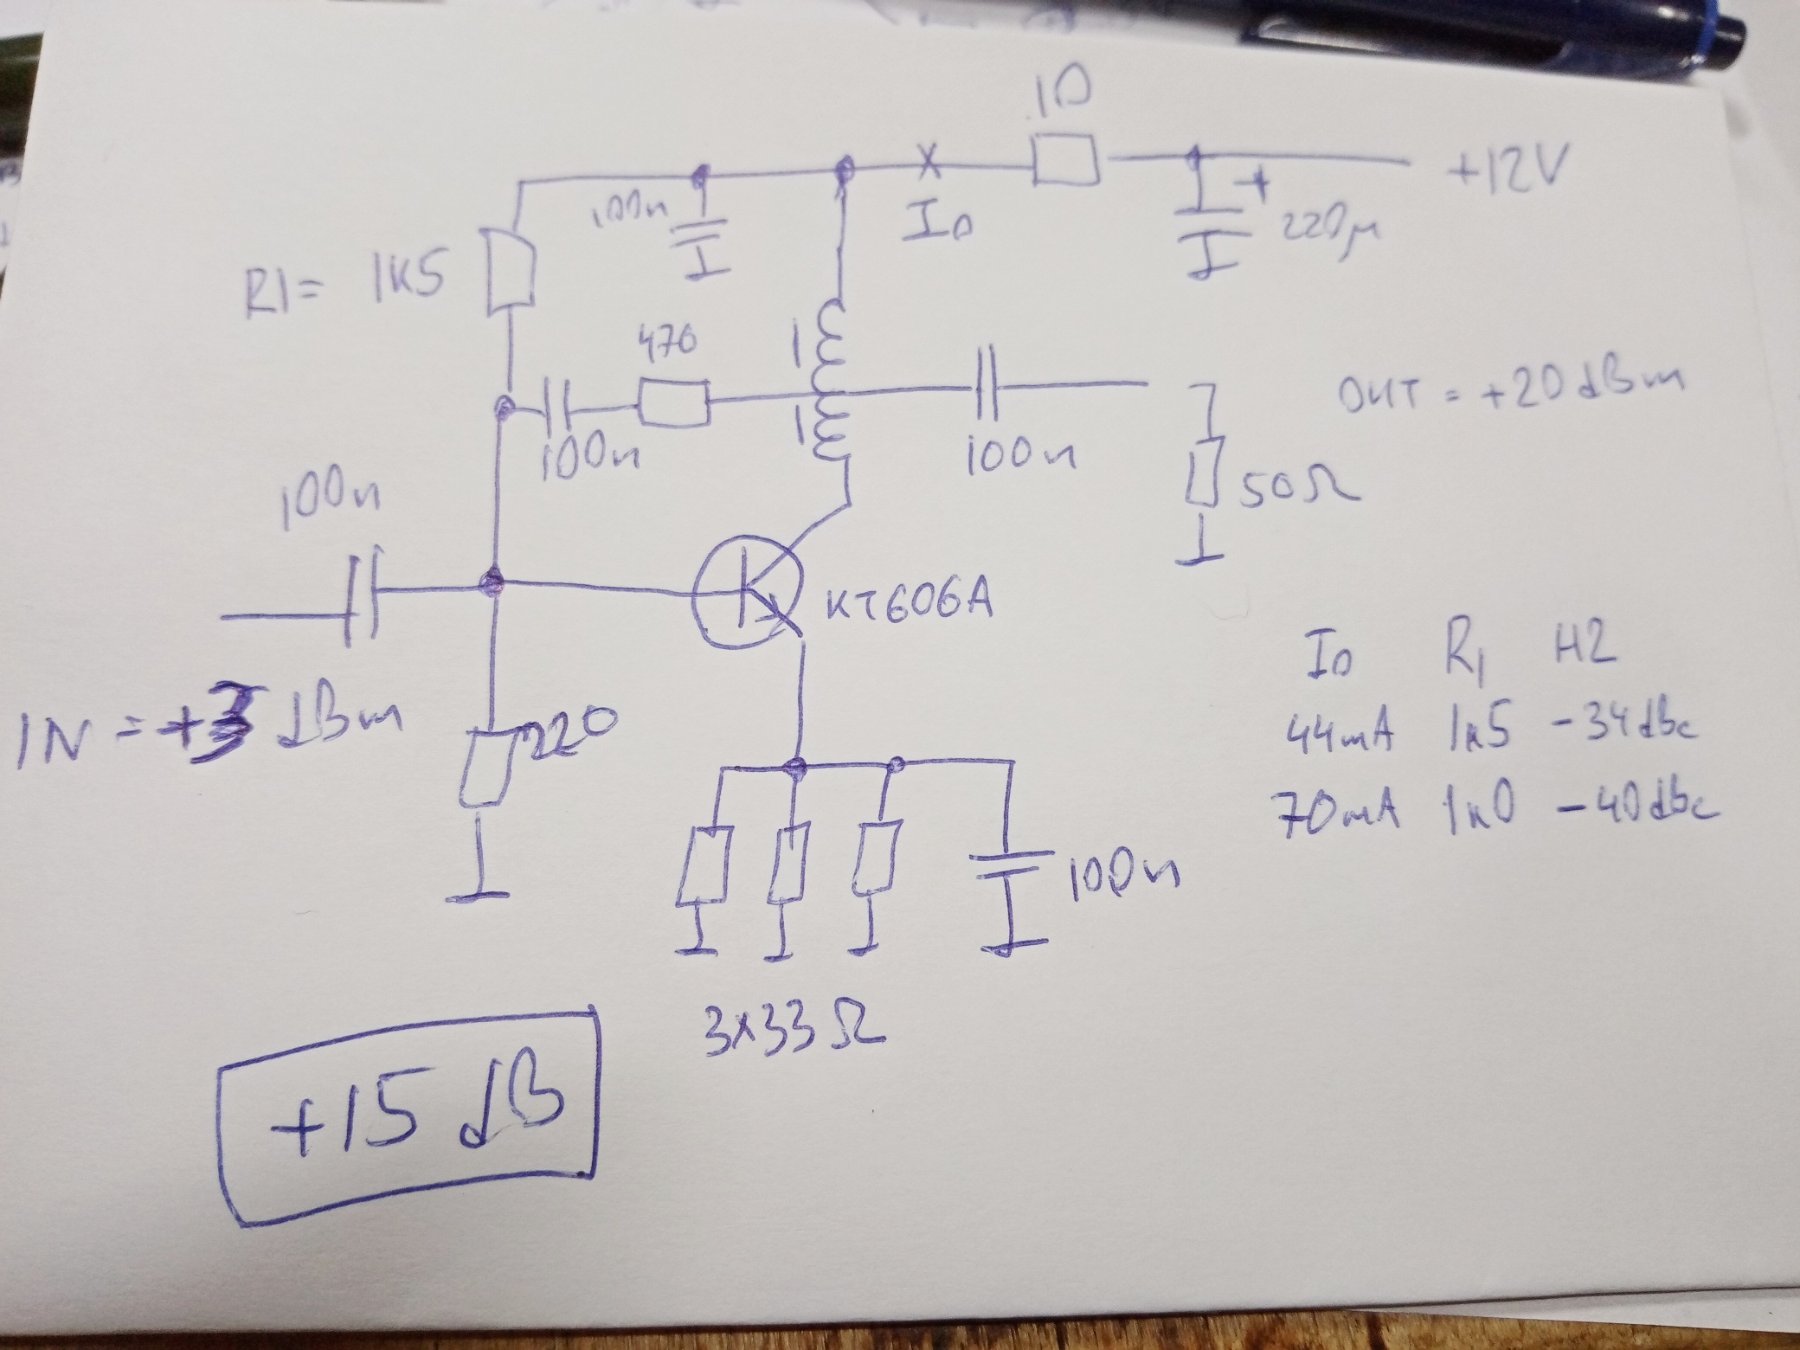 10
+12V
100n
I0
+
220μ
R1= 1K5
470
1
1
OUT = +20 dBm
100n
100n
100n
50Ω
КТ606А
I0 R1 H2
IN = +3 dBm
220
44mA 1к5 -34dBc
70mA 1к0 -40dBc
100n
3x33Ω
+15 dB